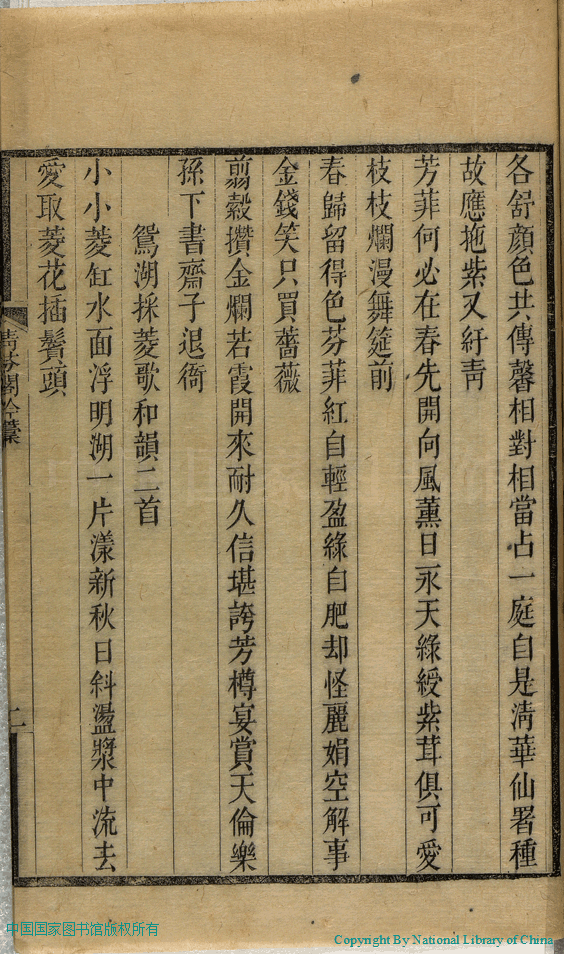 各舒顏色共傳馨相對相當占一庭自是淸華仙署種
故應拖紫又紆靑
芳菲何必在春先開向風薰日永天綠綬紫茸俱可愛
枝枝爛漫舞筵前
春歸留得色芬菲紅自輕盈綠自肥却怪麗娟空解事
金錢笑只買薔薇
翦縠攢金爛若霞開來耐久信堪誇芳樽宴賞天倫樂
孫下書齋子退衙
鴛湖採菱歌和韻二首
小小菱缸水面浮明湖一片漾新秋日斜盪漿中流去
愛取菱花插鬢頭
靑芬閣吟藁
二
中国国家图书馆版权所有
Copyright By National Library of China